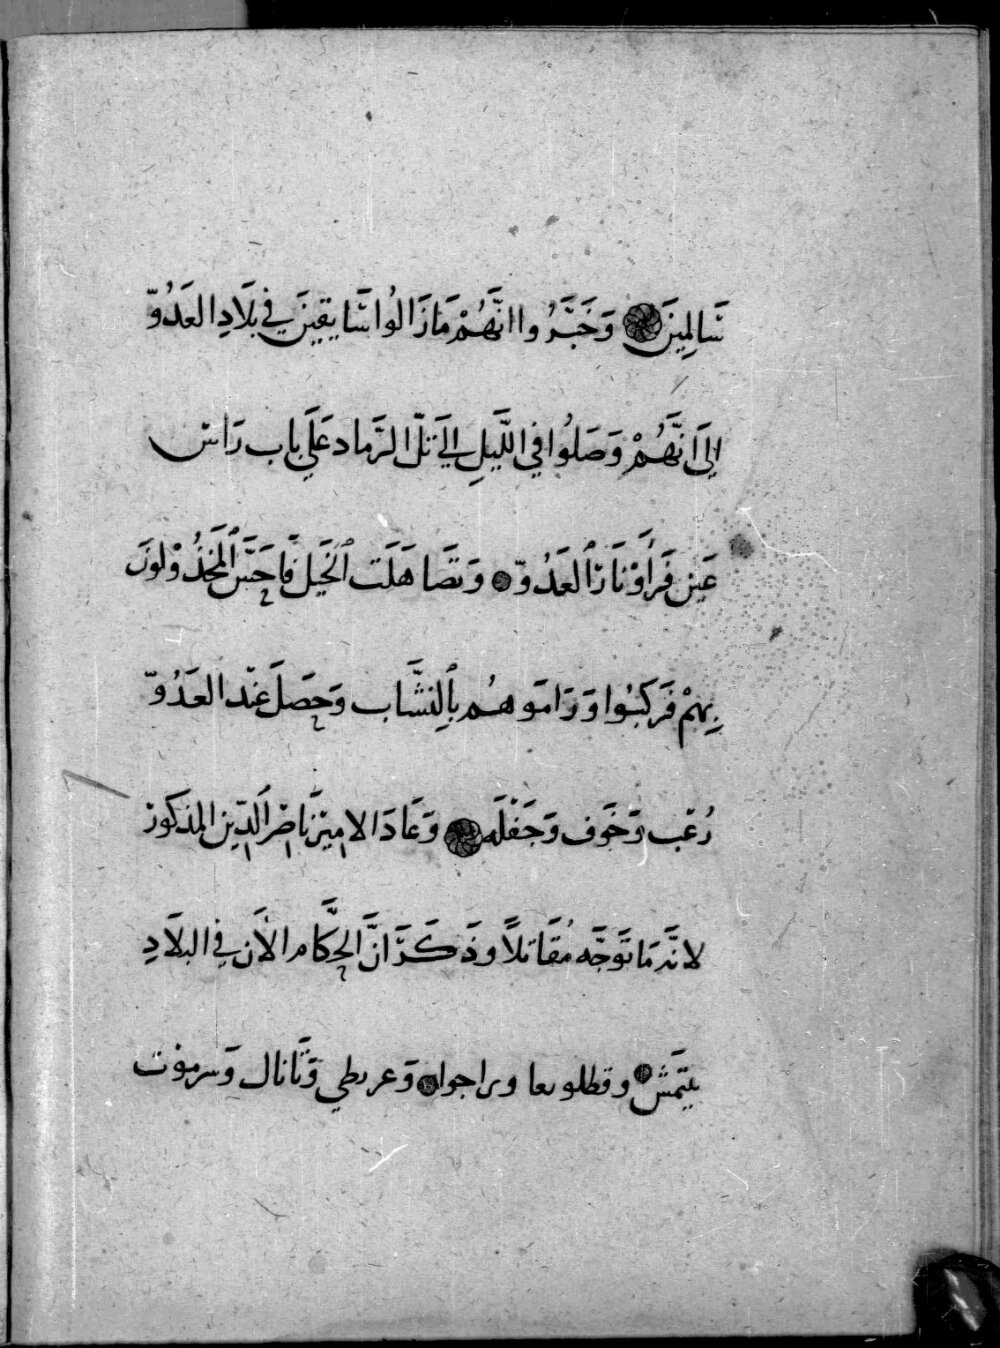 سَالمِينَ وَخَبَّرُوا انَّهُمْ مَازَالُوا سَايقِينَ في بلَادِ العَدُوّ
الىَ انَّهُمْ وَصَلُوا في اللَّيلِ الىَ تلّ الرَّماد عَلَي باب رَاس
عَين فَرأَوْ نَارَ العَدُوّ وَتصَاهَلَت الخَيل فَاحَسَّ المخَذُوْلونَ
بِهمْ فَركَبُوا وَرَامَوهُم بِالنشَّاب وَحصَلَ عنْد العَدُوّ
رُعْب وَخَوف وَجَفْلَه وَعَادَ الامِيْر نَاصْر الَدّين المذكوْر
لانَّه مَا تَوَجَّه مُقَاتلاً وذَكَرَ انَّ الحكَّام الآن في البلَادِ
بيَتمشْ وقطلوبعا وبراجوا وَعربطي وَتَانال وَسرموْت